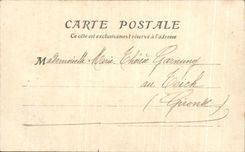 CARTE POSTALE
Ce côté est exclusivement réservé à l'adresse
Mademoiselle Marie Thérèse
au Teich
(Gironde)